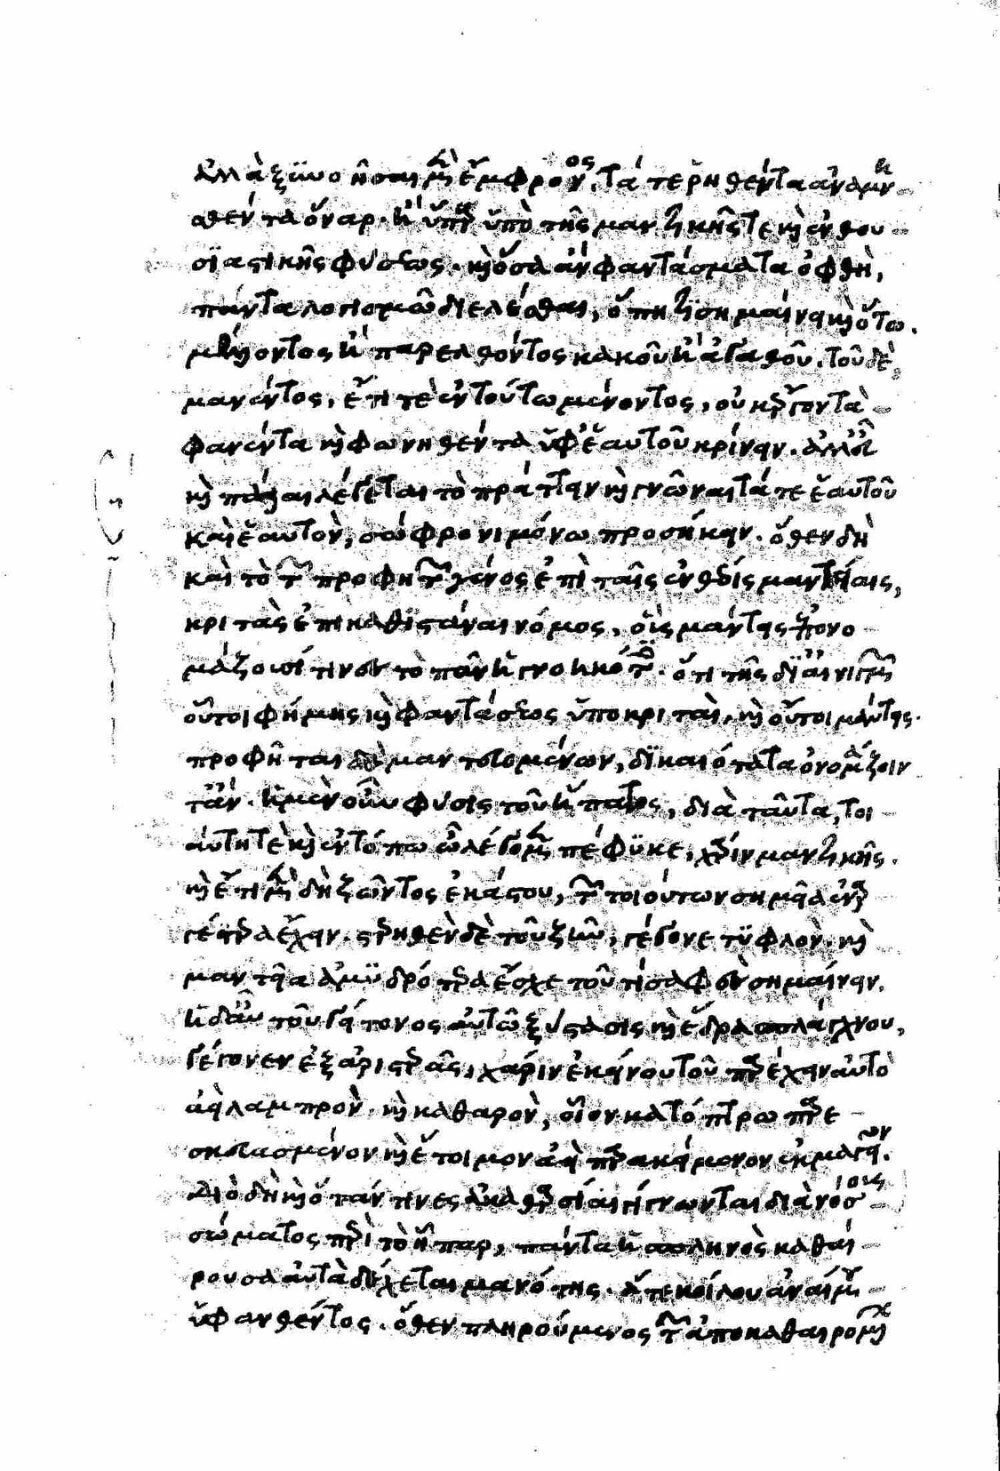 ἀλλὰ ξυννοῆσαι μὲν ἔμφρονος τά τε ῥηθέντα ἀναμνη
σθέντα ὄναρ ἢ ὕπαρ ὑπὸ τῆς μαντικῆς τε καὶ ἐνθου
σϊαστικῆς φύσεως. καὶ ὅσα ἂν φαντάσματα ὀφθῆ,
πάντα λογισμῶ διελέσθαι, ὅπη τϊ σημαίνει καὶ ὅτω.
μέλλοντος ἢ παρελθόντος κακοῦ ἢ ἀγαθοῦ. τοῦ δὲ
μανέντος, ἔτι τὲ ἐν τούτω μένοντος, οὐκ ἔργον τὰ
φανέντα καὶ φωνηθέντα ὑφ' ἑαυτοῦ κρίνειν. ἀλλ' εὖ
καὶ πάλαι λέγεται τὸ πράττειν καὶ γνῶναι τά τε ἑαυτοῦ
καὶ ἑαυτὸν, σώφρονι μόνω προσήκειν. ὅθεν δὴ
καὶ τὸ τῶν προφητῶν γένος ἐπὶ ταῖς ἐνθέοις μαντείαις,
κριτὰς ἐπικαθϊστάναι νόμος, οὓς μάντεις ἐπονο
μάζουσί τινες τὸ πᾶν ἠγνοηκότες. ὅτι τῆς δϊ' αἰνιγμῶν
οὗτοι φήμης καὶ φαντάσεως ὑποκριταὶ, καὶ οὔτοι μάντεις.
προφῆται δὲ μαντευομένων, δϊκαιότατα ὀνομάζοιν
τ' ἄν. ἡ μὲν οὖν φύσις τοῦ ἥπατος, διὰ ταῦτα, τοι
αύτη τὲ καὶ ἐν τόπω ὧ λέγομεν πέφϋκε, χάριν μαντικῆς.
καὶ ἔτι μὲν δὴ ζῶντος ἑκάστου, τὸ τοιούτων σημεῖα ἐναρ
γέστερα ἔχειν. στερηθὲν δὲ τοῦ ζῆν, γέγονε τϋφλὸν. καὶ
μαντεῖα ἀμϋδρότερα ἔσχε τοῦ τὶ σαφὲς σημαίνειν.
ἡ δ' αὖ τοῦ γείτονος αὐτῶ ξύστασις καὶ ἕδρα σπλάγχνου,
γέγονεν ἐξ ἀριστερᾶς, χάριν ἐκείνου τοῦ παρέχειν αὐτὸ
ἀεὶ λαμπρὸν. καὶ καθαρὸν, οἷον κατόπτρω παρε
σκευασμένον καὶ ἕτοιμον ἀεὶ παρακείμενον ἐκμαγεῖον.
διὸ δὴ καὶ ὅταν τινες ἀκαθαρσίαι γίγνωνται διὰ νόσους
σώματος περὶ τὸ ἧπαρ, πάντα ἡ σπληνὸς καθαί
ρουσα αὐτὰ δέχεται μανότης. ἅτε κοίλου ἀναίμου
ὑφανθέντος. ὅθεν πληρούμενος τῶν ἀποκαθαιρομένων